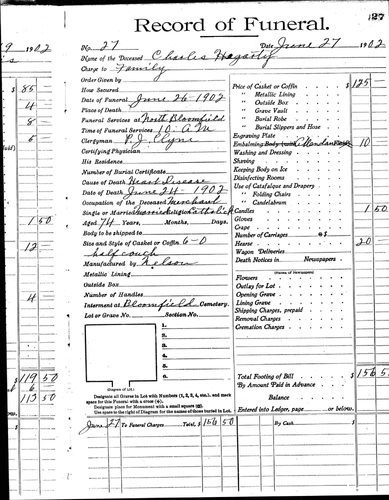 Record of Funeral.
27
9 1902
No. 27 Date June 27 1902
Name of the Deceased Charles Hagarty
Charge to Family
Order Given by
How Secured
Date of Funeral June 26 - 1902
Place of Death
Funeral Services at North Bloomfield
Time of Services 10 A M
Clergyman P. J. Clyne
Certifying Physician
His Residence
Number of Burial Certificate
Cause of Death Heart Disease
Date of Death June 24 - 1902
Occupation of the Deceased Merchant
Single or Married Married Religion Catholic
Aged 74 Years, Months, Days.
Body to be shipped to
Size and Style of Casket or Coffin 6-0
half couch
Manufactured by Nelson
Metallic Lining
Outside Box
Number of Handles
Interment at Bloomfield Cemetery.
Lot or Grave No. Section No.
1.
2.
3.
4.
5.
6.
(Diagram of Lot.)
Designate all Graves in Lot with Numbers (1, 2, 3, 4, etc.), and mark
space for this Funeral with a cross (+).
Designate place for Monument with a small square (□).
Use space to the right of Diagram for the names of those buried in Lot.
Price of Casket or Coffin 125
" Metallic Lining
" Outside Box
" Grave Vault
" Burial Robe
" Burial Slippers and Hose
Engraving Plate
Embalming Body 10
Washing and Dressing
Shaving
Keeping Body on Ice
Disinfecting Rooms
Use of Catafalque and Drapery
" Folding Chairs
" Candelabrum
Candles 1 50
Gloves
Crape
Number of Carriages @$
Hearse 20
Wagon Deliveries
Death Notices in Newspapers
(Names of Newspapers)
Flowers
Outlay for Lot
Opening Grave
Lining Grave
Shipping Charges, prepaid
Removal Charges
Cremation Charges
Total Footing of Bill 156 50
By Amount Paid in Advance
Balance
Entered into Ledger, page or below.
June 27 To Funeral Charges Total, $ 156 50 By Cash
85
4
8
5
1 50
12
4
119 50
6
113 50